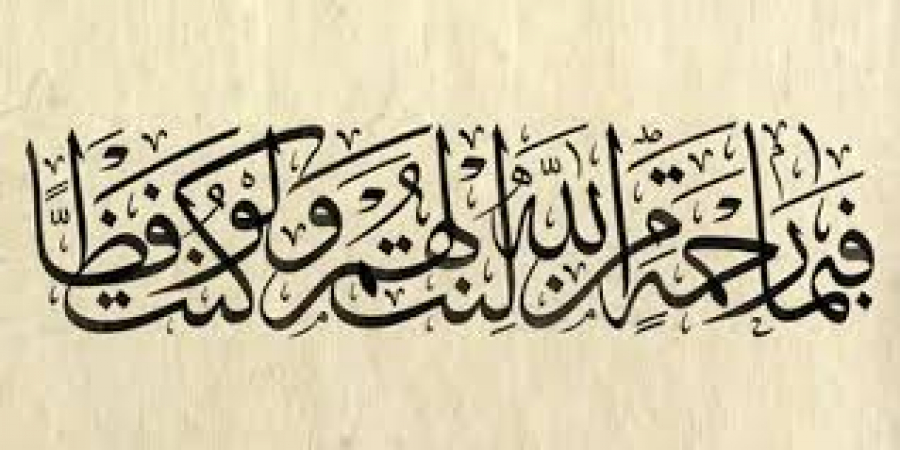 فَبِمَا رَحْمَةٍ مِّنَ اللَّهِ لِنتَ لَهُمْ وَلَوْ كُنتَ فَظًّا